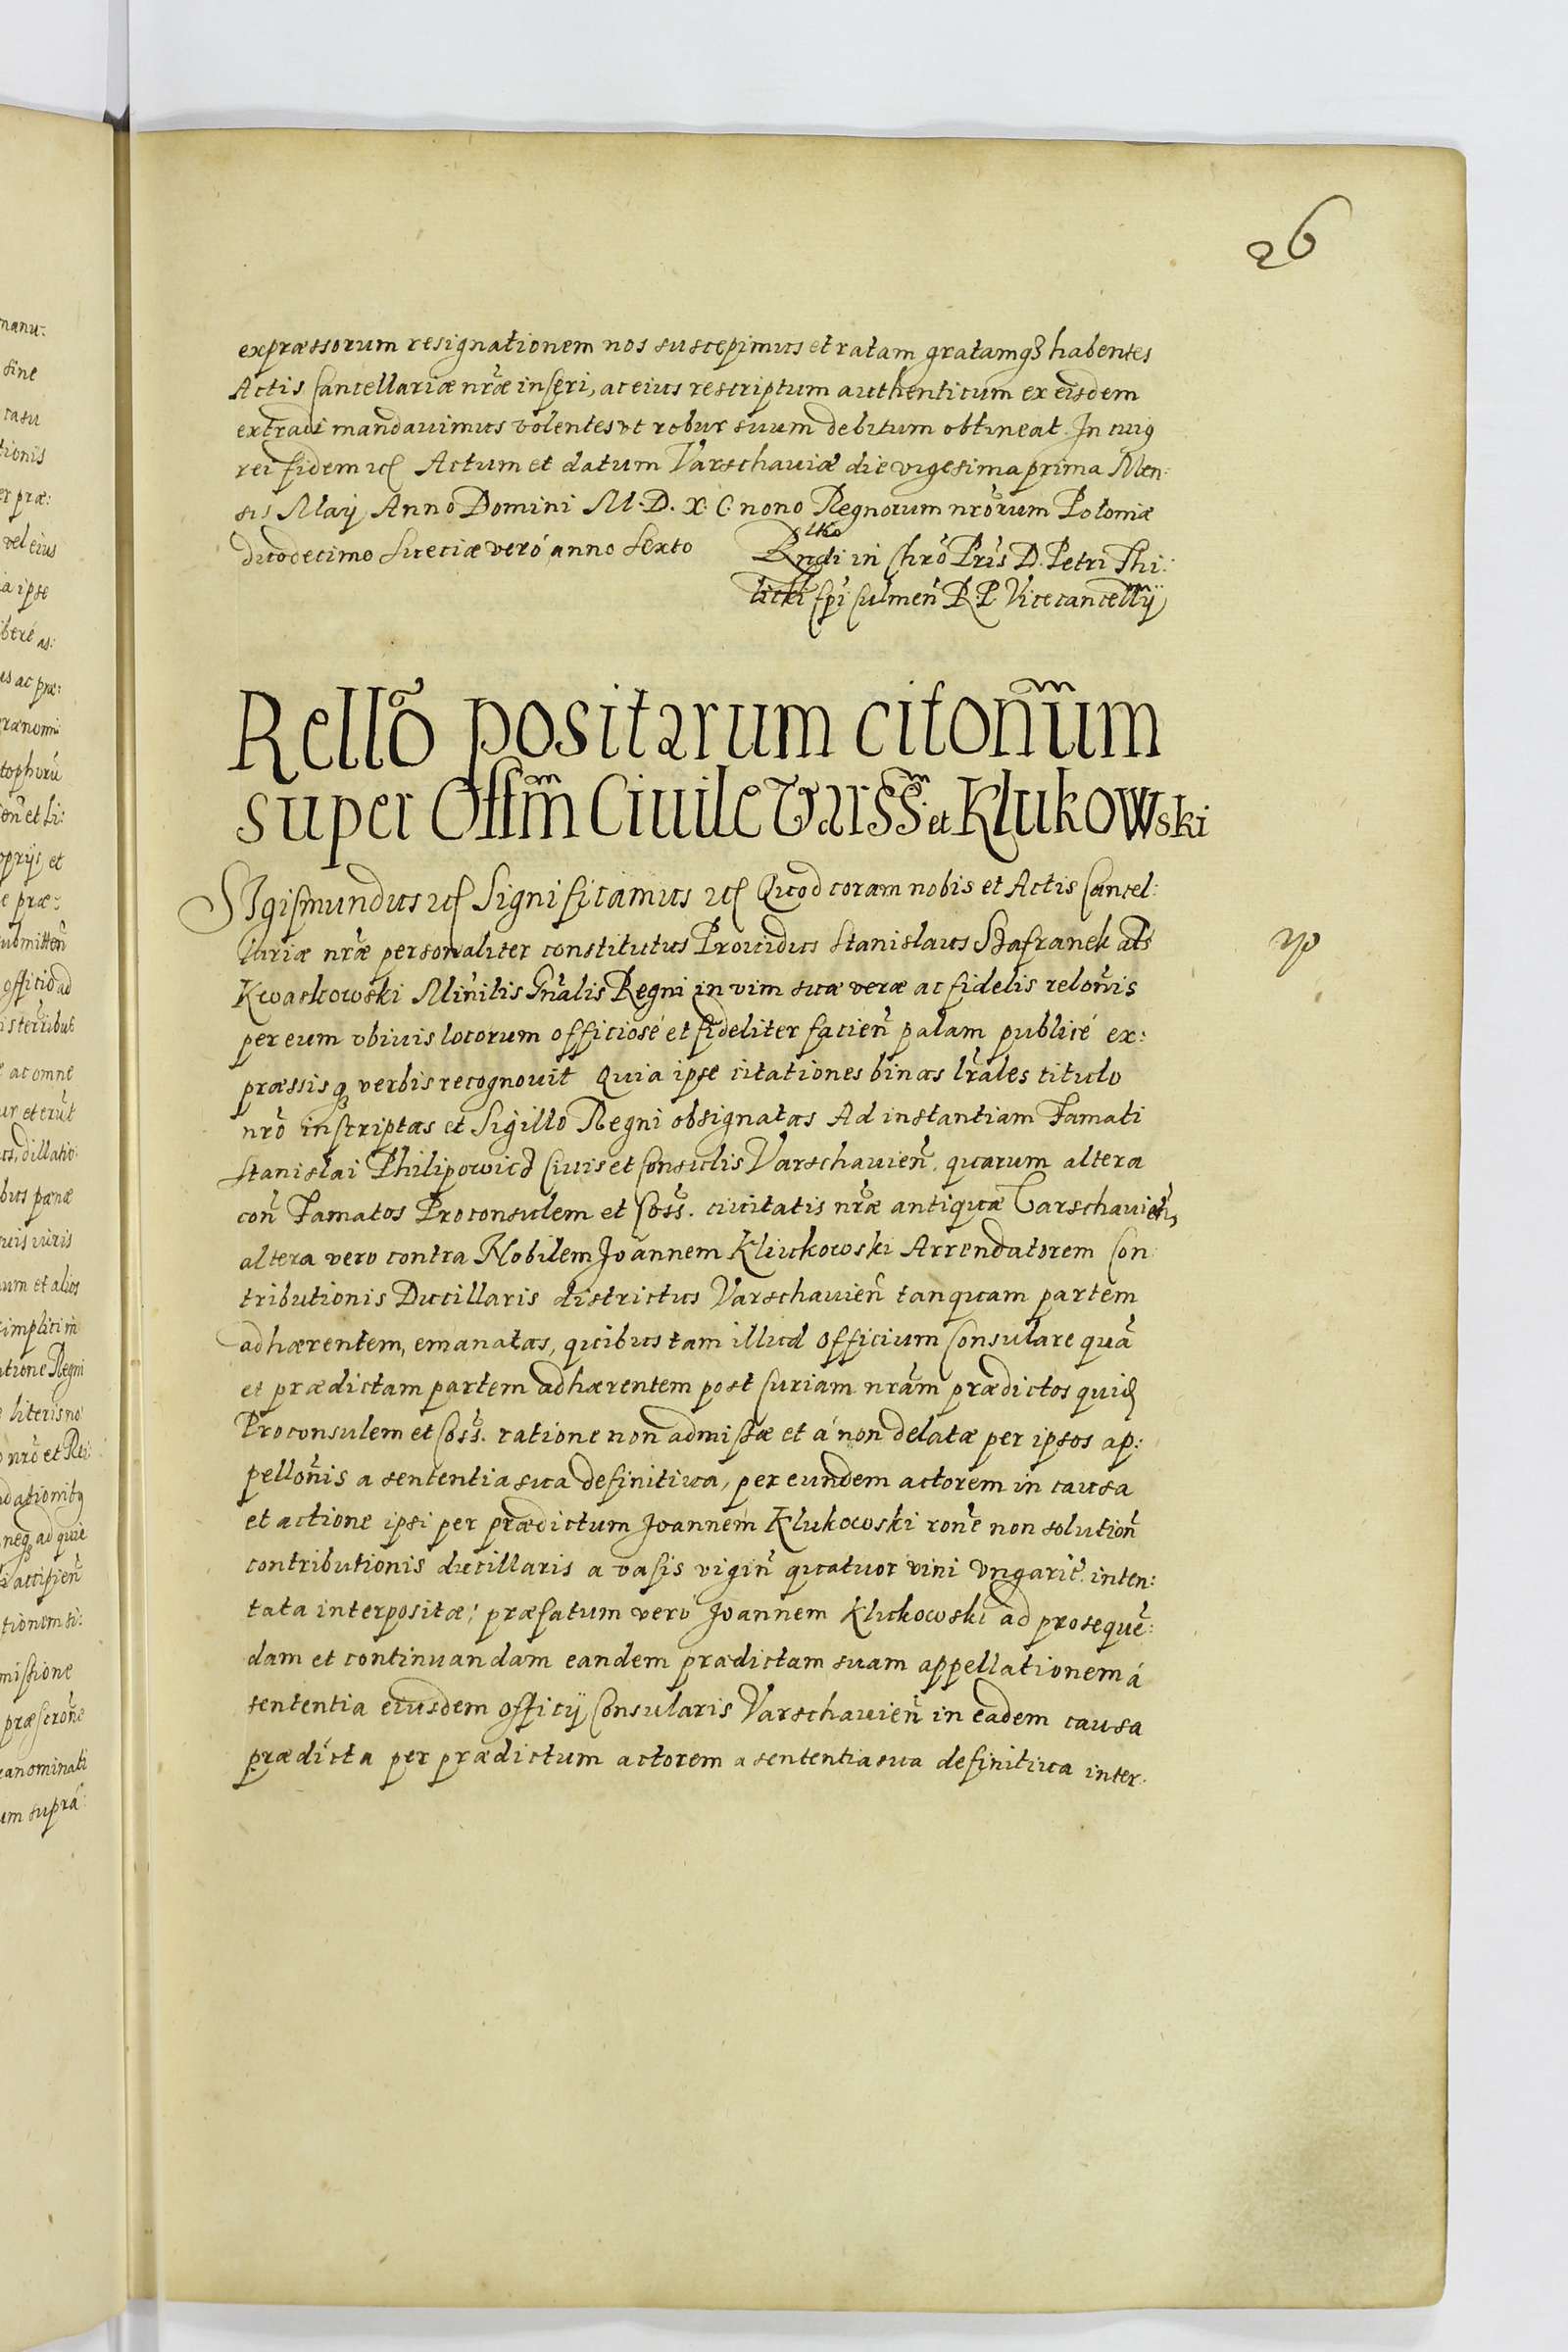 26
expræssorum resignationem nos suscepimus et ratam gratamq3 habentes
Actis Cancellariæ nr̃æ inseri, ac eius rescriptum authenticum ex eisdem
extradi mandauimus volentes vt robur suum debitum obtineat. In cuiq
rei fidem etc Actum et datum Varschauiæ die vigesima prima Men:
sis Maij Anno Domini M.D.X.C. nono Regnorum nr̃orum Poloniæ
duodecimo Sueciæ veró anno sexto
Rndi in Chrõ Pr̃is D. Petri Thi:
licki Epi Culmeñ R.P. Vicecancellij
Rellõ positarum citonũm
super Offm̃ Ciuile Varss: et Klukowski
SIgismundus etc Significamus etc Quod coram nobis et Actis Cancel:
lariæ nr̃æ personaliter constitutus Prouidus Stanislaus Szafranek als
Kwaskowski Mĩnilis Gñalis Regni in vim suæ veræ ac fidelis reloñis
per eum vbiuis locorum officiosé et fideliter facieñ palam publicé ex:
præssisq verbis recognouit Quia ipse citationes binas lr̃ales titulo
nr̃o inscriptas et Sigillo Regni obsignatas Ad instantiam Famati
Stanislai Philipowicz Ciuis et Consulis Varschauieñ. quarum altera
coñ Famatos Proconsulem et Coss. ciuitatis nr̃æ antiquæ Varschauieñ,
altera vero contra Nobilem Joannem Kliukowski Arrendatorem Con
tributionis Ducillaris districtus Varschauieñ tanquam partem
adhærentem, emanatas, quibus tam illud Officium Consulare quã
et prædictam partem adhærentem post Curiam nr̃am prædictos quid
Proconsulem et Coss. ratione non admissæ et á non delatæ per ipsos ap:
pelloñis a sententia sua definitiua, per eundem actorem in causa
et actione ipsi per prædictum Joannem Klukowski roñe non solutioñ
contributionis ducillaris a vasis vigiñ quatuor vini Vngaric̃. inten:
tata interpositæ; præfatum vero Joannem Klukowski ad prosequẽ:
dam et continuandam eandem prædictam suam appellationem á
sententia eiusdem officij Consularis Varschauieñ in eadem causa
prædicta per prædictum actorem a sententia sua definitiua inter: